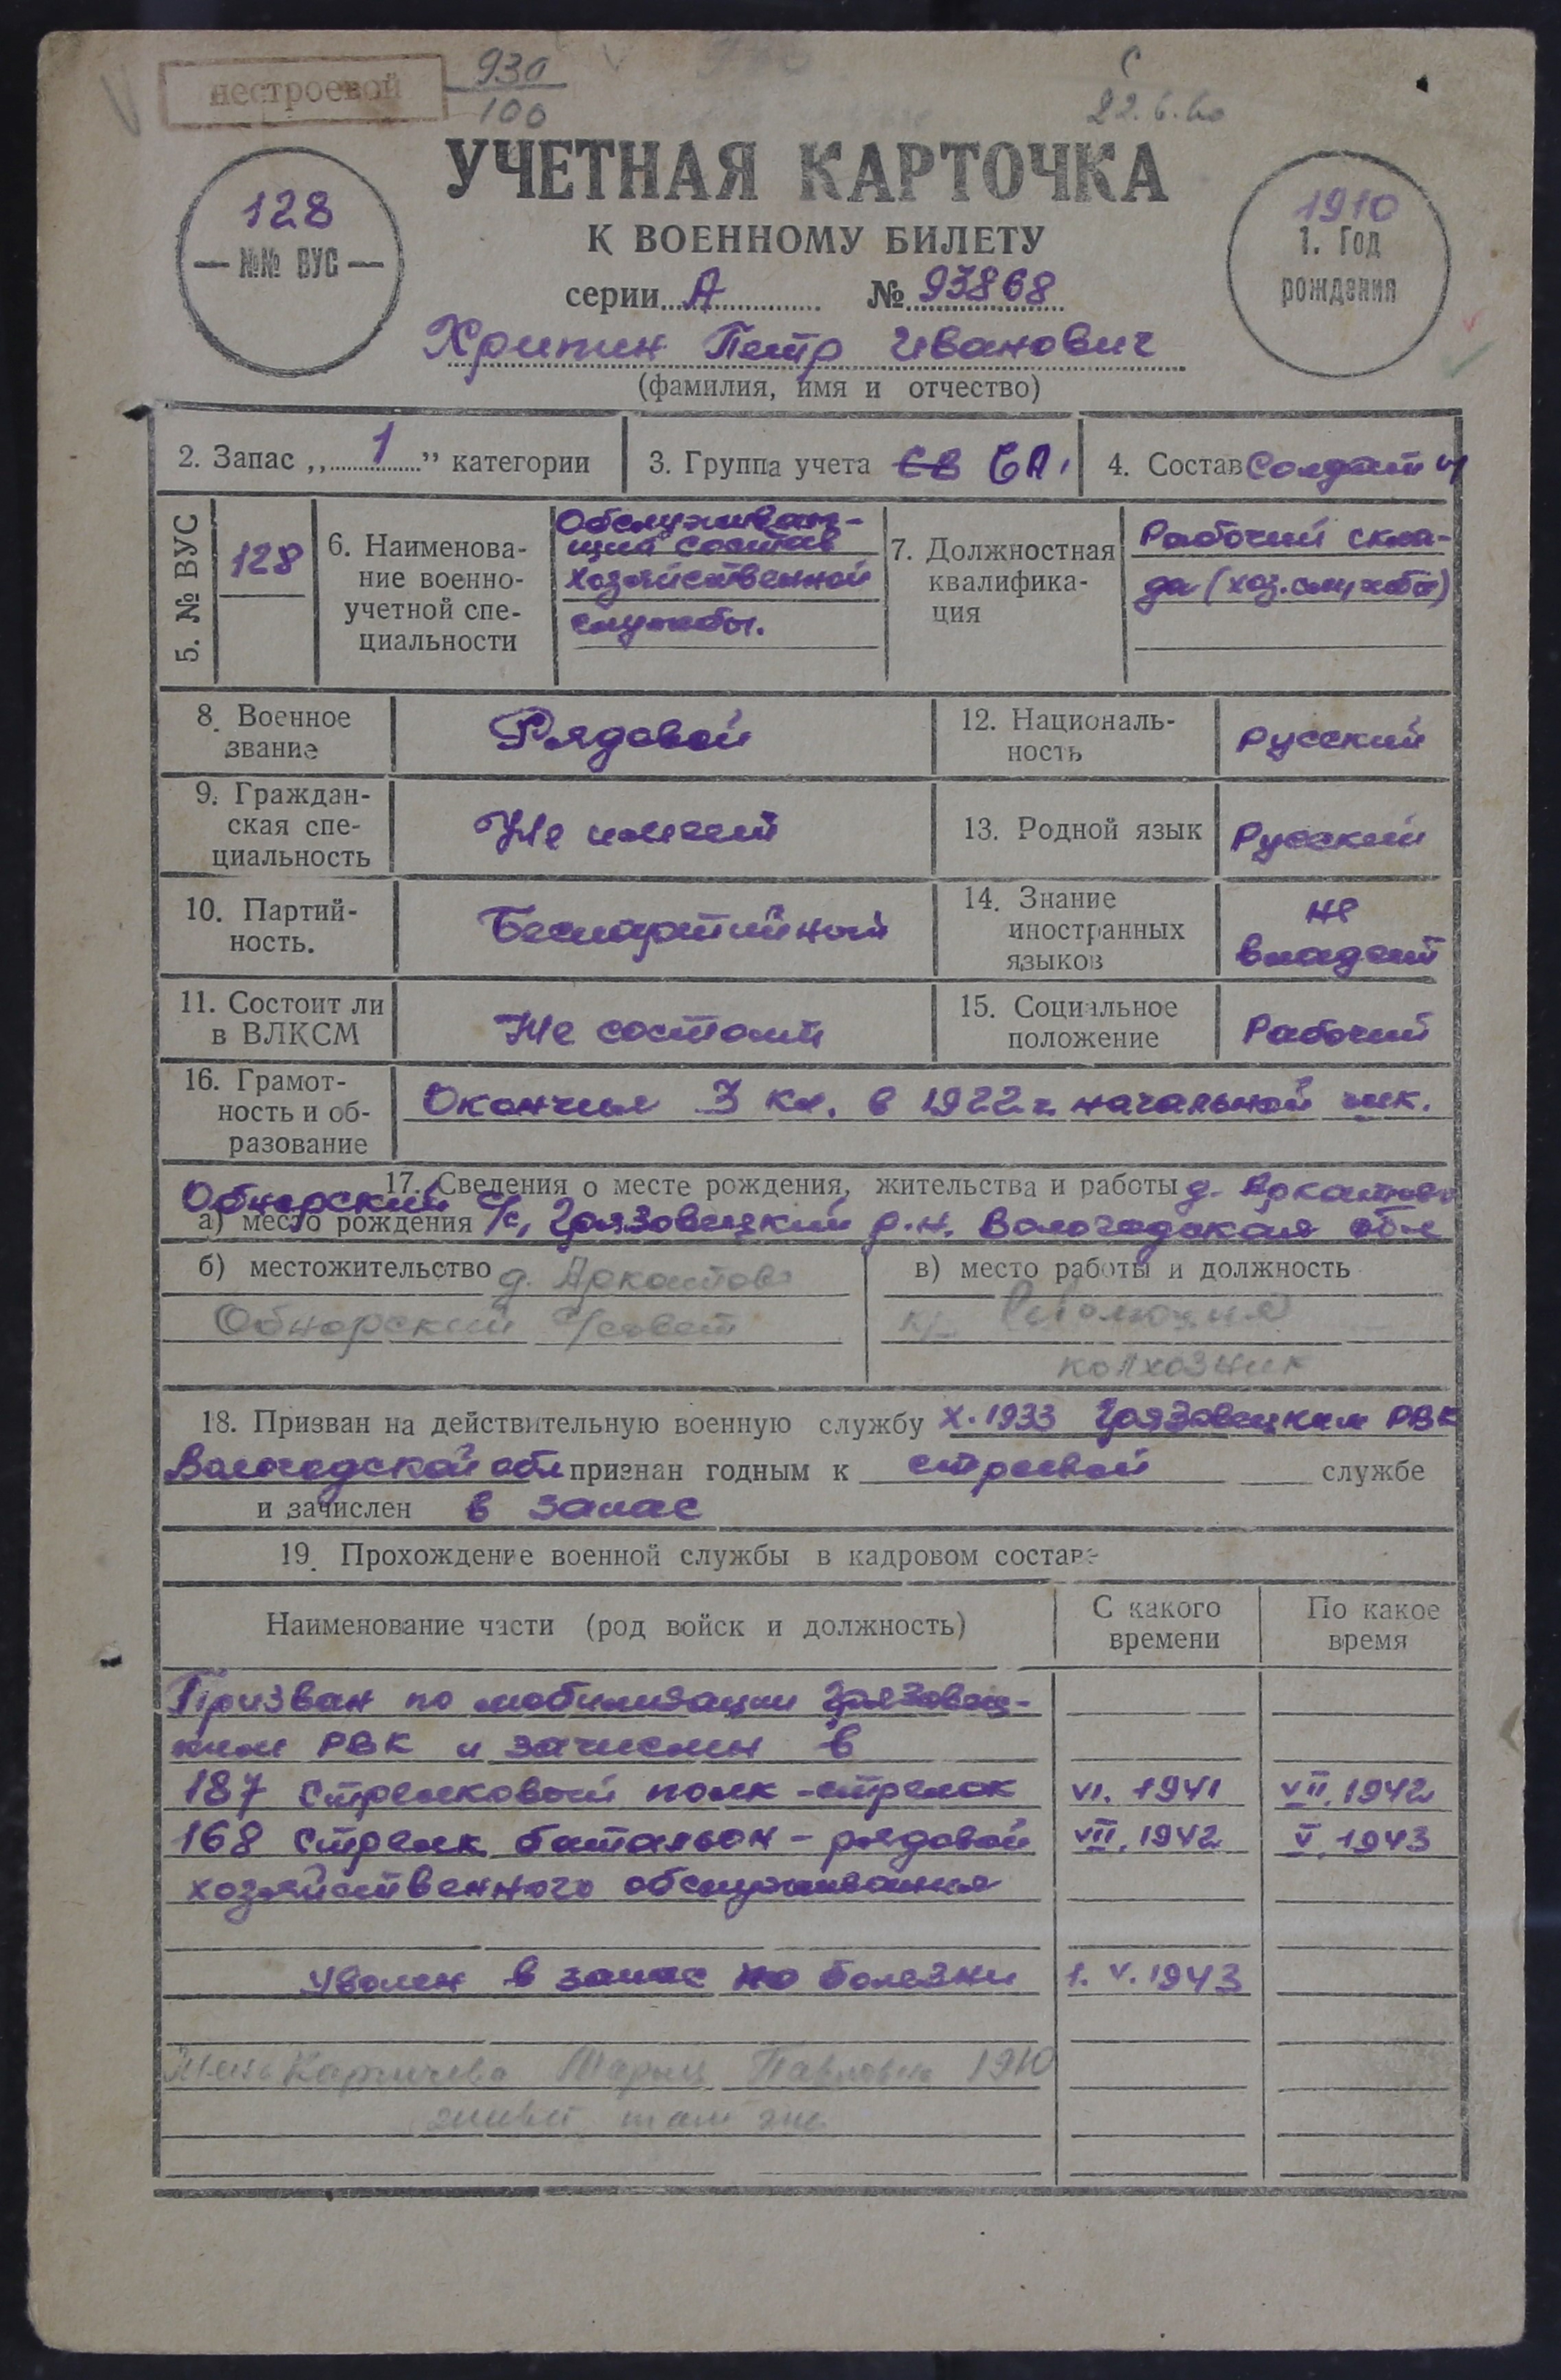 нестроевой
930
100
22.6.60
УЧЕТНАЯ КАРТОЧКА
К ВОЕННОМУ БИЛЕТУ
128
— №№ ВУС —
1910
1. Год
рождения
серии А № 93868
Хрипин Петр Иванович
(фамилия, имя и отчество)
2. Запас „ 1 ” категории
3. Группа учета СВ СА.
4. Состав Солдаты
5. № ВУС
128
6. Наименова-
ние военно-
учетной спе-
циальности
Обслуживаю-
щий состав
хозяйственной
службы.
7. Должностная
квалифика-
ция
Рабочий скла-
да (хоз. службы)
8. Военное
звание
Рядовой
12. Националь-
ность
Русский
9. Граждан-
ская спе-
циальность
Не имеет
13. Родной язык
Русский
10. Партий-
ность.
Беспартийный
14. Знание
иностранных
языков
не
владеет
11. Состоит ли
в ВЛКСМ
Не состоит
15. Социальное
положение
Рабочий
16. Грамот-
ность и об-
разование
Окончил 3 кл. в 1922 г. начальной шк.
17. Сведения о месте рождения, жительства и работы д. Аркатово
Обнорский
а) место рождения С/с, Грязовецкий р-н. Вологодская обл
б) местожительство д. Аркатово
Обнорский С/совет
в) место работы и должность
к/з Революция
колхозник
18. Призван на действительную военную службу X.1933 Грязовецким РВК
Вологодской обл признан годным к строевой службе
и зачислен в запас
19. Прохождение военной службы в кадровом составе
Наименование части (род войск и должность)
С какого
времени
По какое
время
Призван по мобилизации Грязовец-
ким РВК и зачислен в
187 стрелковый полк - стрелок VI. 1941 VII. 1942
168 стрелк. батальон - рядовой VII. 1942 V. 1943
хозяйственного обслуживания
Уволен в запас по болезни 1. V. 1943
Жена Мария Павловна 1910
живет там же